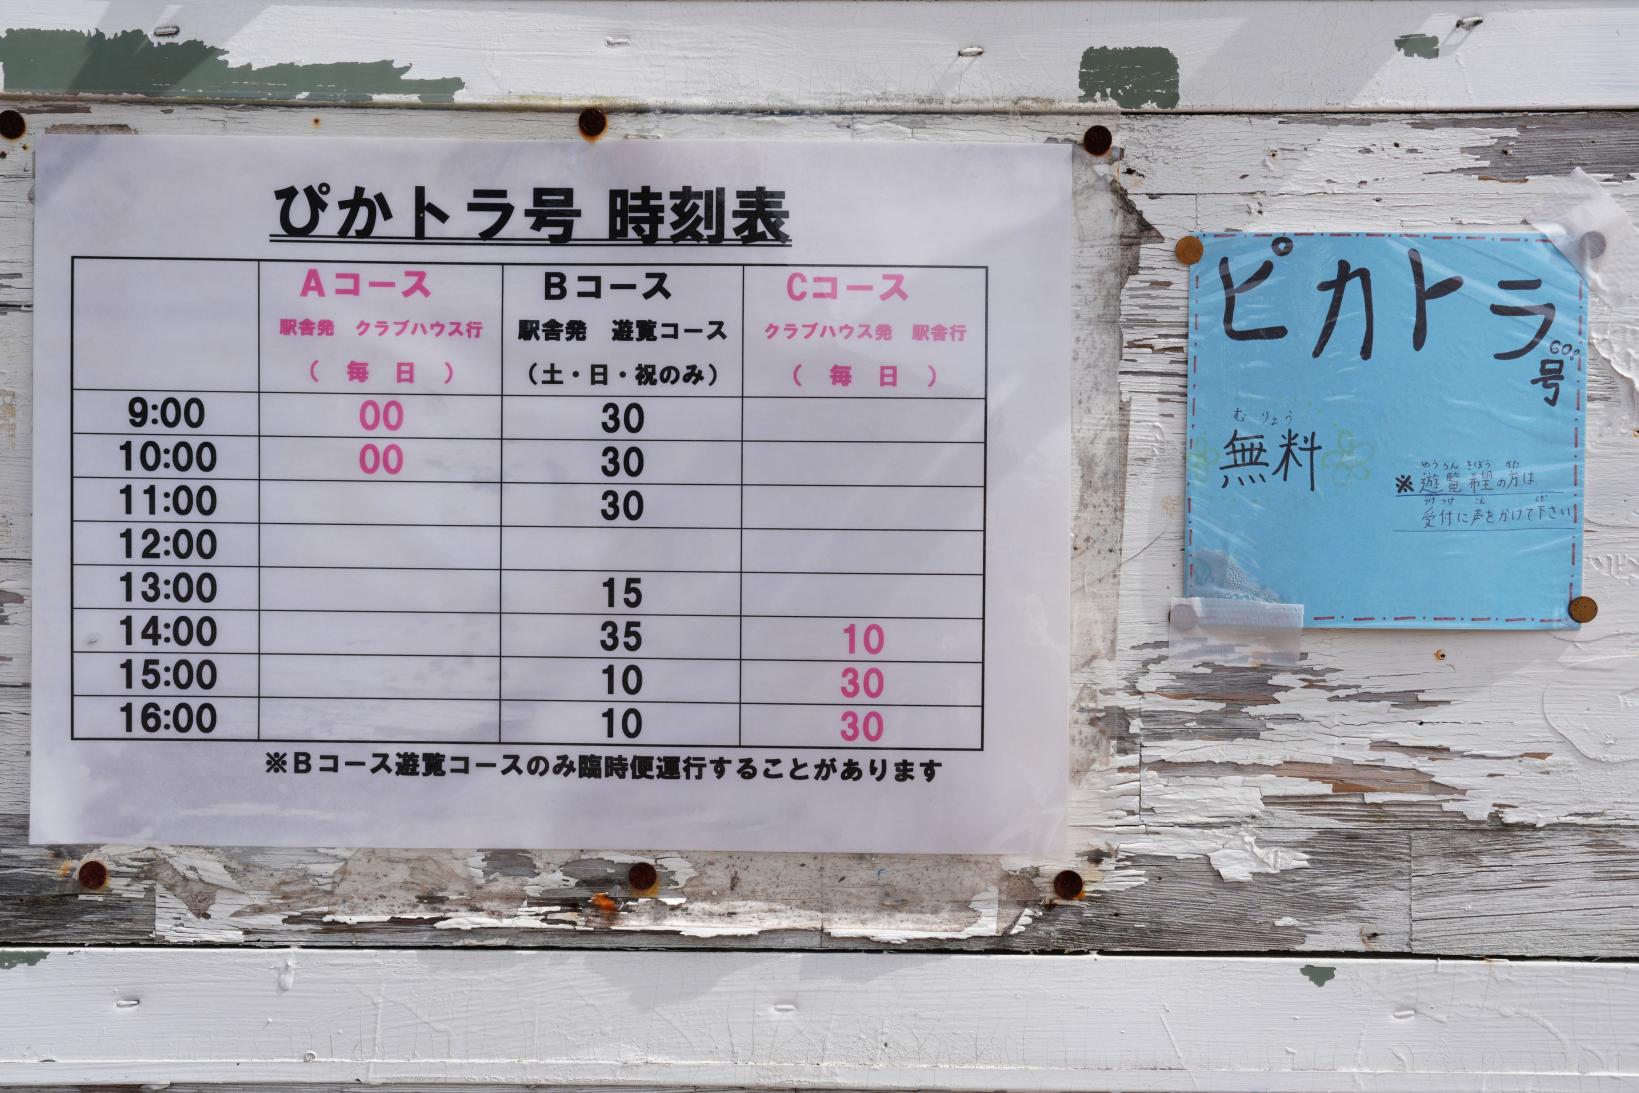 ぴかトラ号 時刻表
Aコース Bコース Cコース
駅舎発 クラブハウス行 駅舎発 遊覧コース クラブハウス発 駅舎行
（ 毎 日 ） （土・日・祝のみ） （ 毎 日 ）
9:00 00 30
10:00 00 30
11:00 30
12:00
13:00 15
14:00 35 10
15:00 10 30
16:00 10 30
※Bコース遊覧コースのみ臨時便運行することがあります
ピカトラ
GO!
号
むりょう
無料
ゆうらん きぼう かた
※遊覧希望の方は
うけつけ こえ くだ
受付に声をかけて下さい